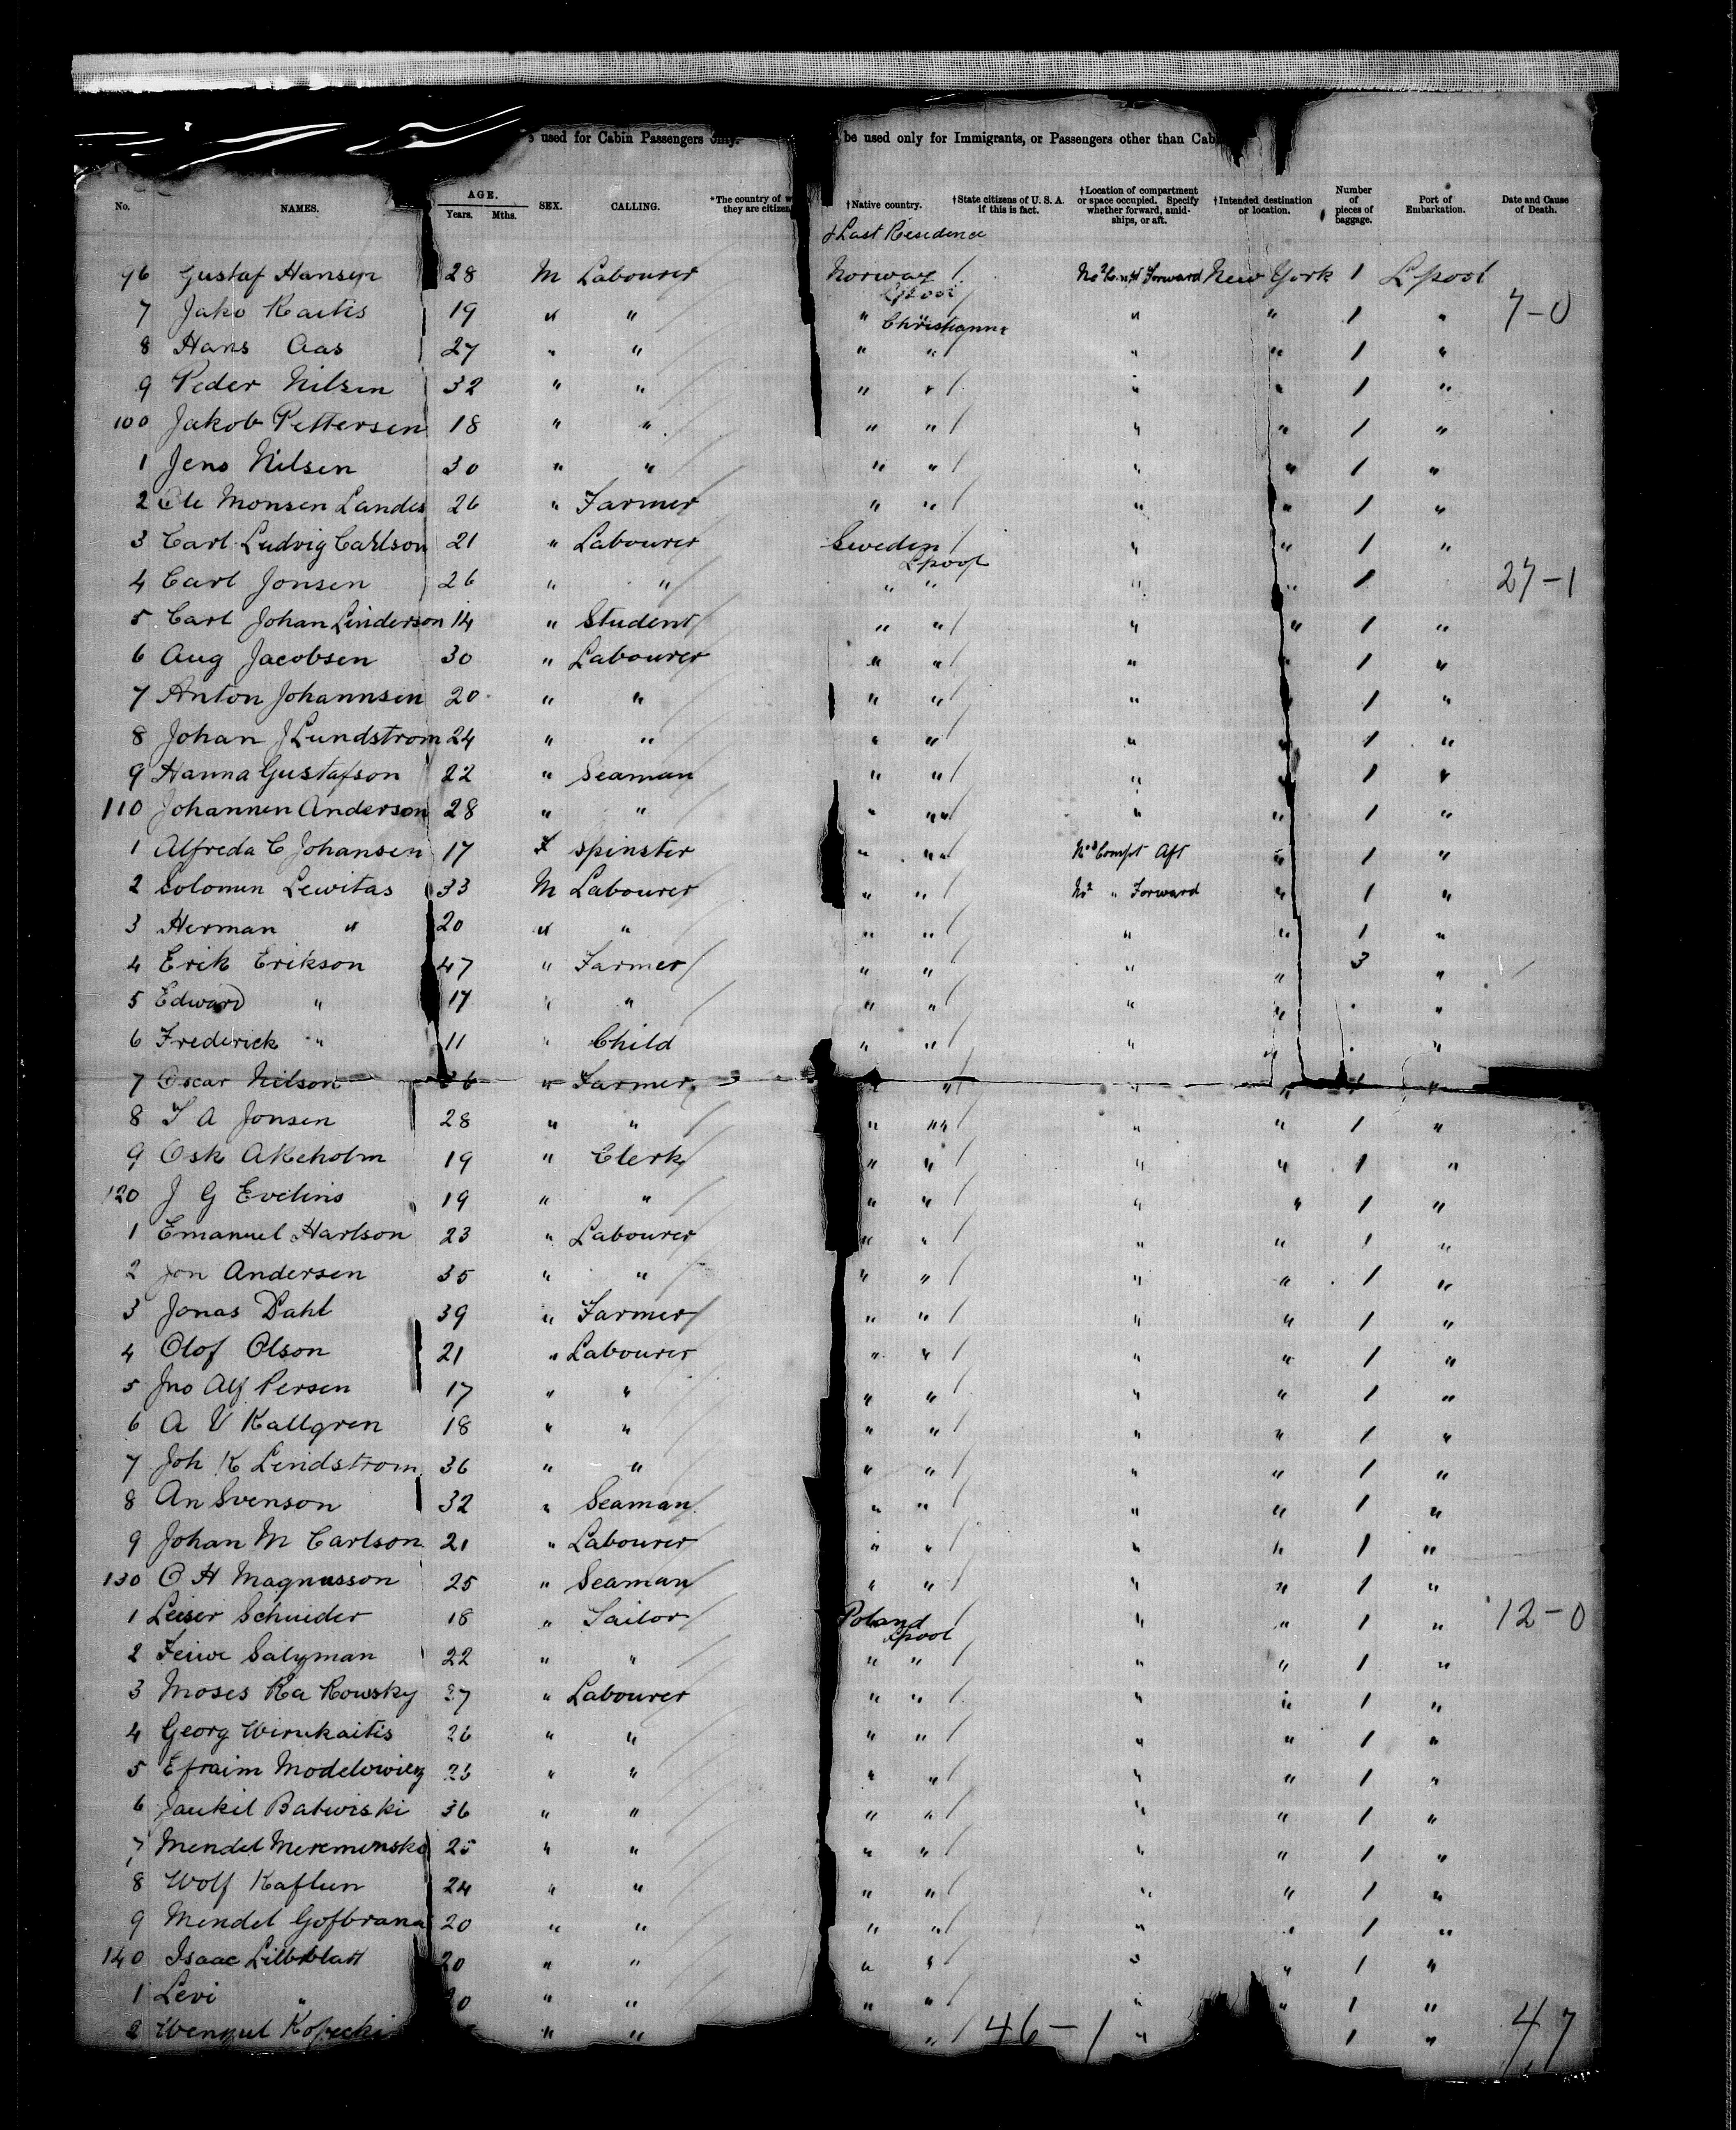 used for Cabin Passengers only. be used only for Immigrants, or Passengers other than Cab
No. NAMES. AGE. Years. Mths. SEX. CALLING. *The country of w they are citizen †Native country. †State citizens of U. S. A. if this is fact. †Location of compartment or space occupied. Specify whether forward, amid-ships, or aft. †Intended destination or location. Number of pieces of baggage. Port of Embarkation. Date and Cause of Death.
& Last Residence
96 Gustaf Hansen 28 M Labourer Norway / No 2 Forward New York 1 Lpool
Lpool
7 Jako Raitis 19 " " " Christianna " " 1 " 7-0
8 Hans Aas 27 " " " " " " 1 "
9 Peder Nilsen 32 " " " " / " " 1 "
100 Jakob Pettersen 18 " " " " / " " 1 "
1 Jens Nilsen 30 " " " " / " " 1 "
2 Ole Monsen Landes 26 " Farmer " " / " " 1 "
3 Carl Ludvig Carlson 21 " Labourer Sweden / " " 1 "
Lpool
4 Carl Jonsen 26 " " " " " " 1 27-1
5 Carl Johan Linderson 14 " Student " " / " " 1 "
6 Aug Jacobsen 30 " Labourer " " / " " 1 "
7 Anton Johannsen 20 " " " " / " " 1 "
8 Johan J Lundstrom 24 " " " " / " " 1 "
9 Hanna Gustafson 22 " Seaman " " / " " 1 "
110 Johannen Anderson 28 " " " " / " " 1 "
1 Alfreda C Johansen 17 F Spinster " " / No 3 Compt Aft " 1 "
2 Solomon Lewitas 33 M Labourer " " / No 2 " Forward " 1 "
3 Herman " 20 " " " " / " " 1 "
4 Erik Erikson 47 " Farmer " " / " " 3 "
5 Edward " 17 " " " " / " " "
6 Frederick " 11 " Child " " / " " "
7 Oscar Nilson 36 " Farmer " " / " " 1 "
8 J A Jonsen 28 " " " " / " " 1 "
9 Osk Akeholm 19 " Clerk " " / " " 1 "
120 J G Evelins 19 " " " " / " " 1 "
1 Emanuel Harlson 23 " Labourer " " / " " 1 "
2 Jon Andersen 35 " " " " / " " 1 "
3 Jonas Dahl 39 " Farmer " " / " " 1 "
4 Olof Olson 21 " Labourer " " / " " 1 "
5 Jno Alf Persen 17 " " " " / " " 1 "
6 A V Kallgren 18 " " " " / " " 1 "
7 Joh K Lindstrom 36 " " " " / " " 1 "
8 An Svenson 32 " Seaman " " / " " 1 "
9 Johan M Carlson 21 " Labourer " " / " " 1 "
130 O H Magnusson 25 " Seaman " " / " " 1 "
1 Leiser Schneider 18 " Tailor Poland / " " 1 " 12-0
Lpool
2 Feiwe Salzman 22 " " " " / " " 1 "
3 Moses Ra Kowsky 27 " Labourer " " / " " 1 "
4 Georg Wirukaitis 26 " " " " / " " 1 "
5 Efraim Modelowicz " " " " / " " 1 "
6 Jankil Batwiski 36 " " " " / " " 1 "
7 Mendel Meremensko 25 " " " " / " " 1 "
8 Wolf Kaflun 24 " " " " / " " 1 "
9 Mendel Gofbrana 20 " " " " / " " 1 "
140 Isaac Lilbblatt 20 " " " " / " " 1 "
1 Levi " " " " " / " " 1 "
2 Wenzul Kopecki " " " / 46-1 " 1 " 47